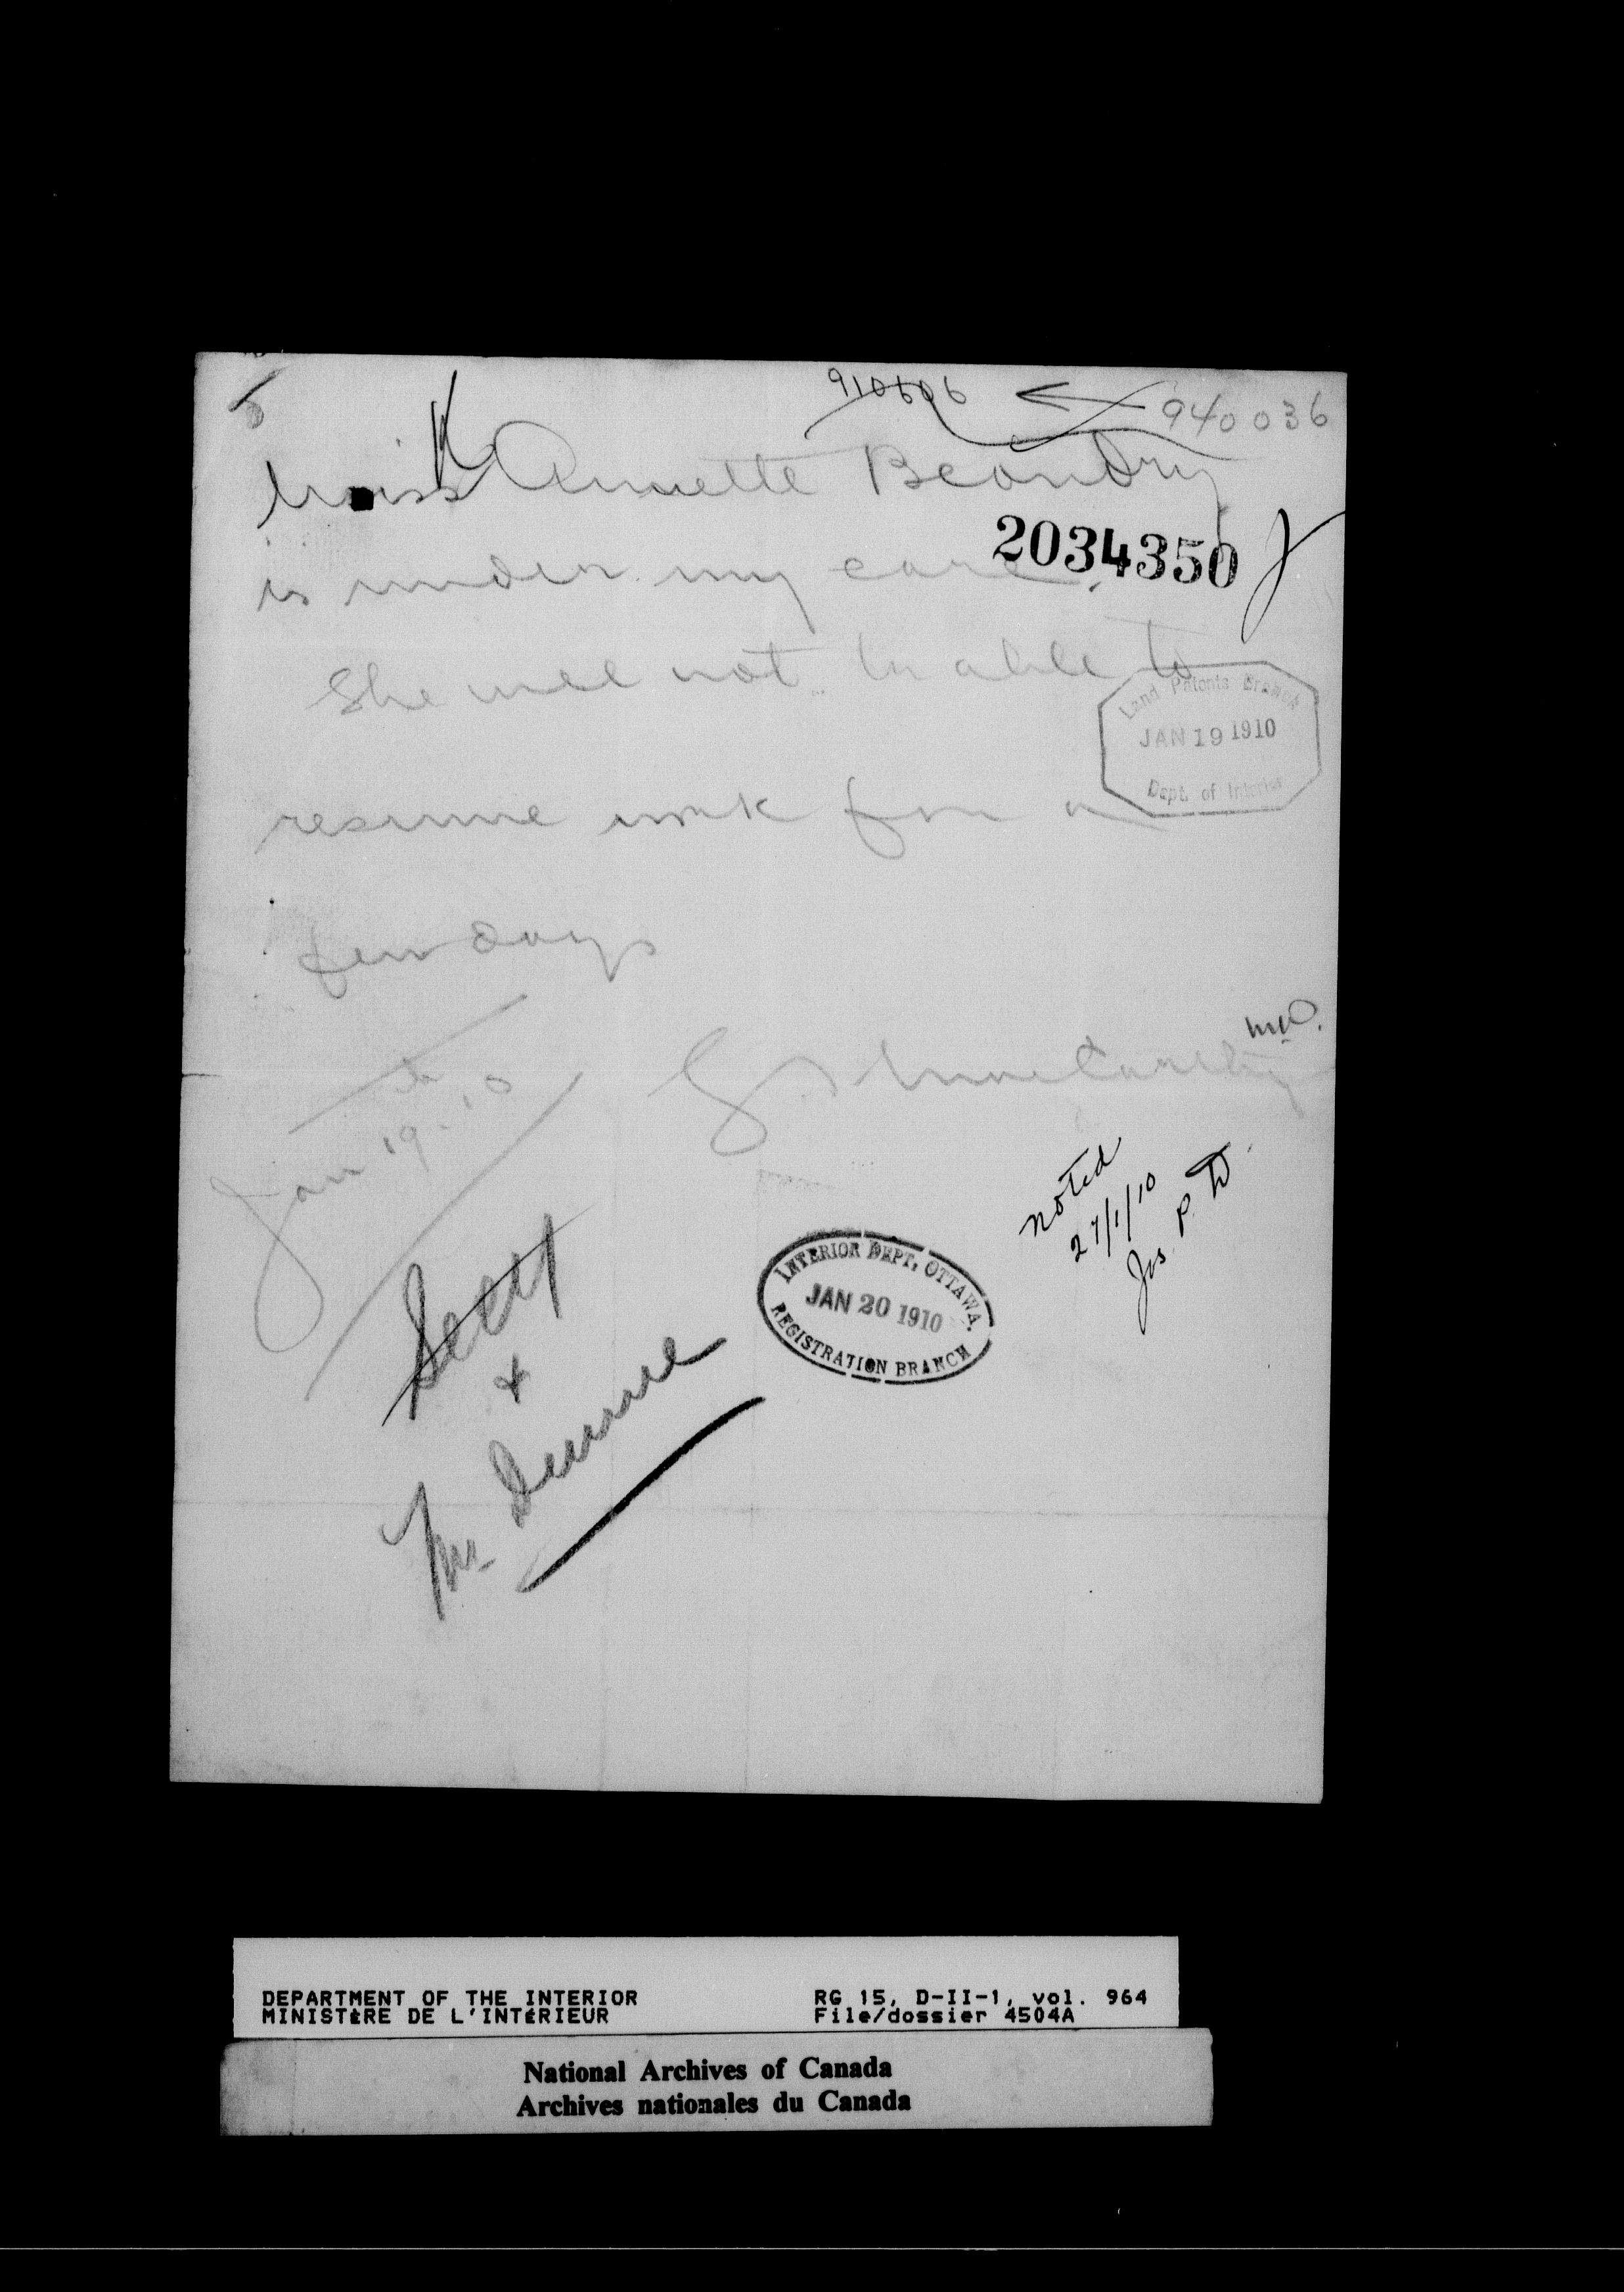 910606
940036
Miss Annette Beaudry
2034350
is under my care.
She will not be able to
Land Patents Branch
JAN 19 1910
Dept. of Interior
resume work for a
few days
G. MacCarthy M.D.
Jan 19-10
noted
27/1/10
Jos. P. D.
Secy
&
Mr. Dunne
INTERIOR DEPT, OTTAWA.
JAN 20 1910
REGISTRATION BRANCH
DEPARTMENT OF THE INTERIOR RG 15, D-II-1, vol. 964
MINISTÈRE DE L'INTÉRIEUR File/dossier 4504A
National Archives of Canada
Archives nationales du Canada